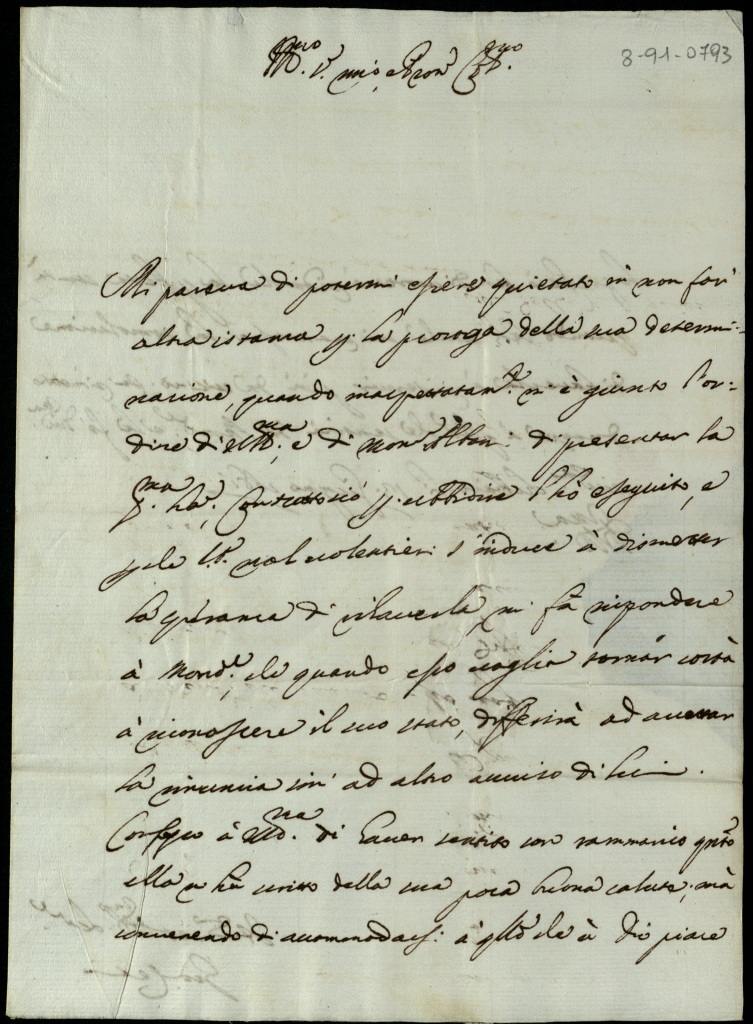 8-91-0793
Ill.mo S.r mio, e Pron' Col.mo
Mi pareva di potermi essere quietato in non far'
altra istanza p. la proroga della sua determi-
nazione, quando inaspettatam.te m'è giunto l'or-
dine di VS Ill.ma, e di mons.r Albani di presentar la
Con tuttociò p. ubbidire l'hò eseguito, e
p che S.P. mal volentieri s'induce à dismetter
la speranza di rilaverla, mi fà rispondere
à Mons.re, che quando esso voglia tornar' costà
à riconoscere il suo stato, differirà ad accettar
la rinuncia sin' ad altro avviso di lui.
Confesso à VS Ill.ma di haver sentito con rammarico q.to
ella m'hà scritto della sua poca buona salute; mà
convenendo di accommodarsi à q.llo che à Dio piace